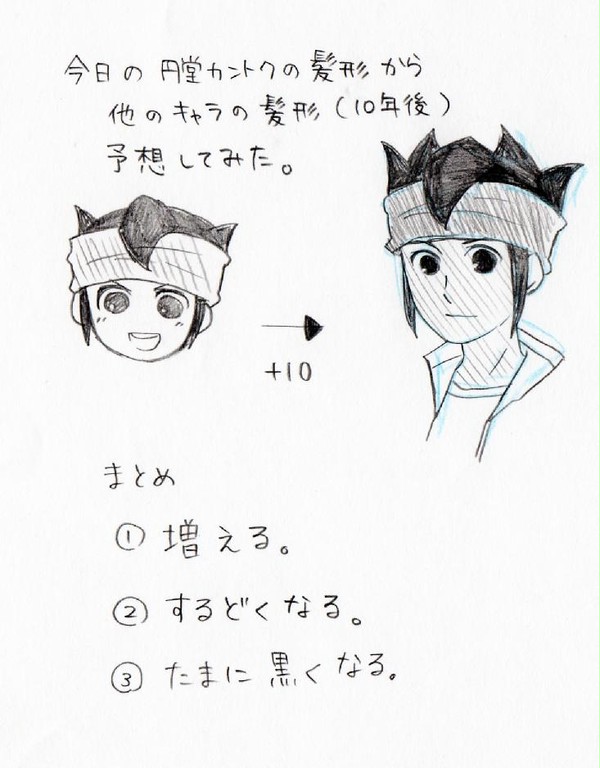 今日の円堂カントクの髪形から
他のキャラの髪形(10年後)
予想してみた。
+10
まとめ
① 増える。
② するどくなる。
③ たまに黒くなる。